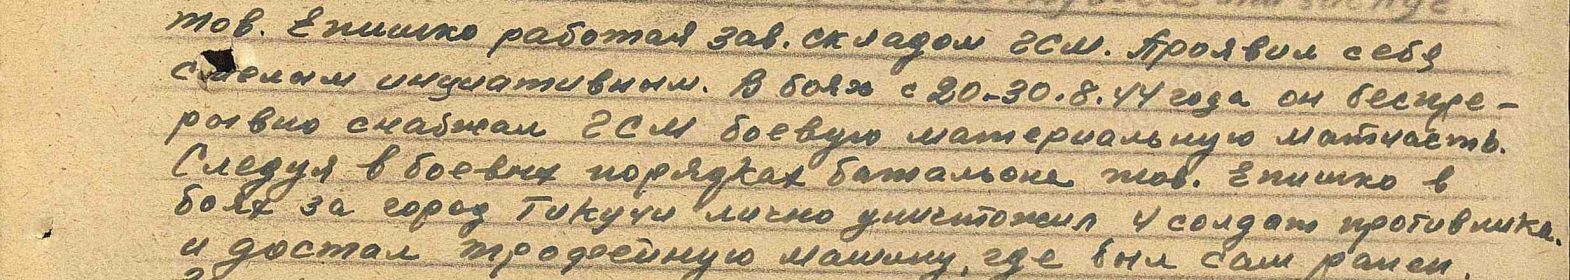 тов. Епишко работая зав. складом ГСМ. Проявил себя
смелым инциативным. В боях с 20-30.8.44 года он беспре-
рывно снабжал ГСМ боевую материальную матчасть.
Следуя в боевых порядках батальона тов. Епишко в
боях за город Текучи лично уничтожил 4 солдат противника.
и достал трофейную машину, где был сам ранен